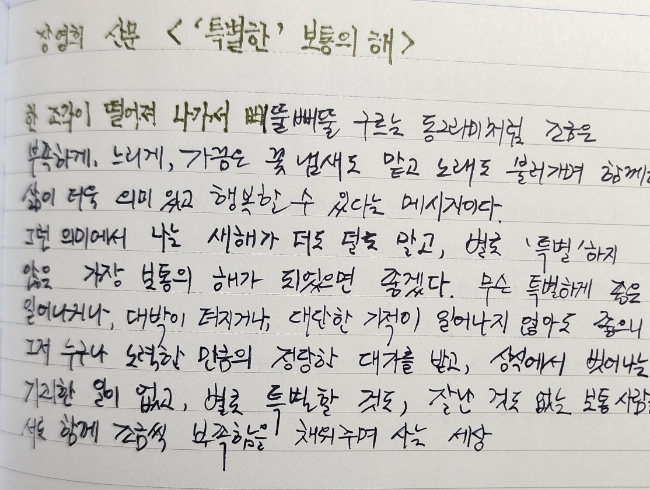 장영희 산문 <'특별한' 보통의 해>
한 조각이 떨어져 나가서 삐뚤삐뚤 구르는 동그라미처럼 조금은
부족하게, 느리게, 가끔은 꽃 냄새도 맡고 노래도 불러가며 함께하
삶이 더욱 의미 있고 행복할 수 있다는 메시지이다.
그런 의미에서 나는 새해가 더도 덜도 말고, 별로 '특별'하지
않은 가장 보통의 해가 되었으면 좋겠다. 무슨 특별하게 좋은
일어나거나, 대박이 터지거나, 대단한 기적이 일어나지 않아도 좋으니
그저 누구나 노력한 만큼의 정당한 대가를 받고, 상식에서 벗어나는
기괴한 일이 없고, 별로 특별할 것도, 잘난 것도 없는 보통 사람들
서로 함께 조금씩 부족함을 채워주며 사는 세상